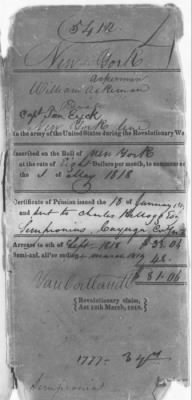 (5412)
New York
Ackerman
William Akeman
Private
Capt Ten Eyck
New York line
to the army of the United States during the Revolutionary W
Inscribed on the Roll of New York
at the rate of Eight Dollars per month, to commence
the 1 of May 1818
Certificate of Pension issued the 18 of January
and sent to Charles Kellogg Esq
Sempronius, Cayuga Co
Arrears to 4th of Sept 1818 $ 33.06
Semi-anl. all'ce ending March 1819 48
$ 81.06
Van Cortlandt
Revolutionary claim,
Act 18th March, 1818.
1777
Sempronius